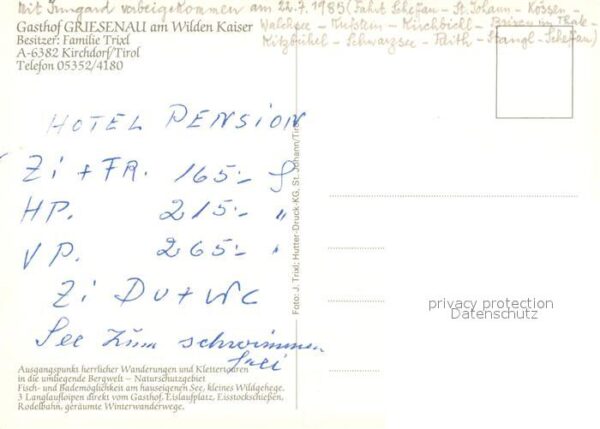 Mit Irmgard vorbeigekommen am 22.7.1985 (Fahrt Scheffau - St. Johann - Kössen -
Walchsee - Kufstein - Kirchbichl - Brixen im Thale -
Kitzbühel - Schwarzsee - Reith - Stangl - Scheffau)
Gasthof GRIESENAU am Wilden Kaiser
Besitzer: Familie Trixl
A-6382 Kirchdorf/Tirol
Telefon 05352/4180
HOTEL PENSION
Zi + FR. 165.- S
HP. 215.- "
VP. 265.- "
Zi DU + WC
See zum schwimmen
frei
Foto: J. Trixl; Hutter-Druck-KG, St. Johann/Tirol
privacy protection
Datenschutz
Ausgangspunkt herrlicher Wanderungen und Klettertouren
in die umliegende Bergwelt – Naturschutzgebiet
Fisch- und Bademöglichkeit am hauseigenen See, kleines Wildgehege.
3 Langlaufloipen direkt vom Gasthof, Eislaufplatz, Eisstockschießen,
Rodelbahn, geräumte Winterwanderwege.